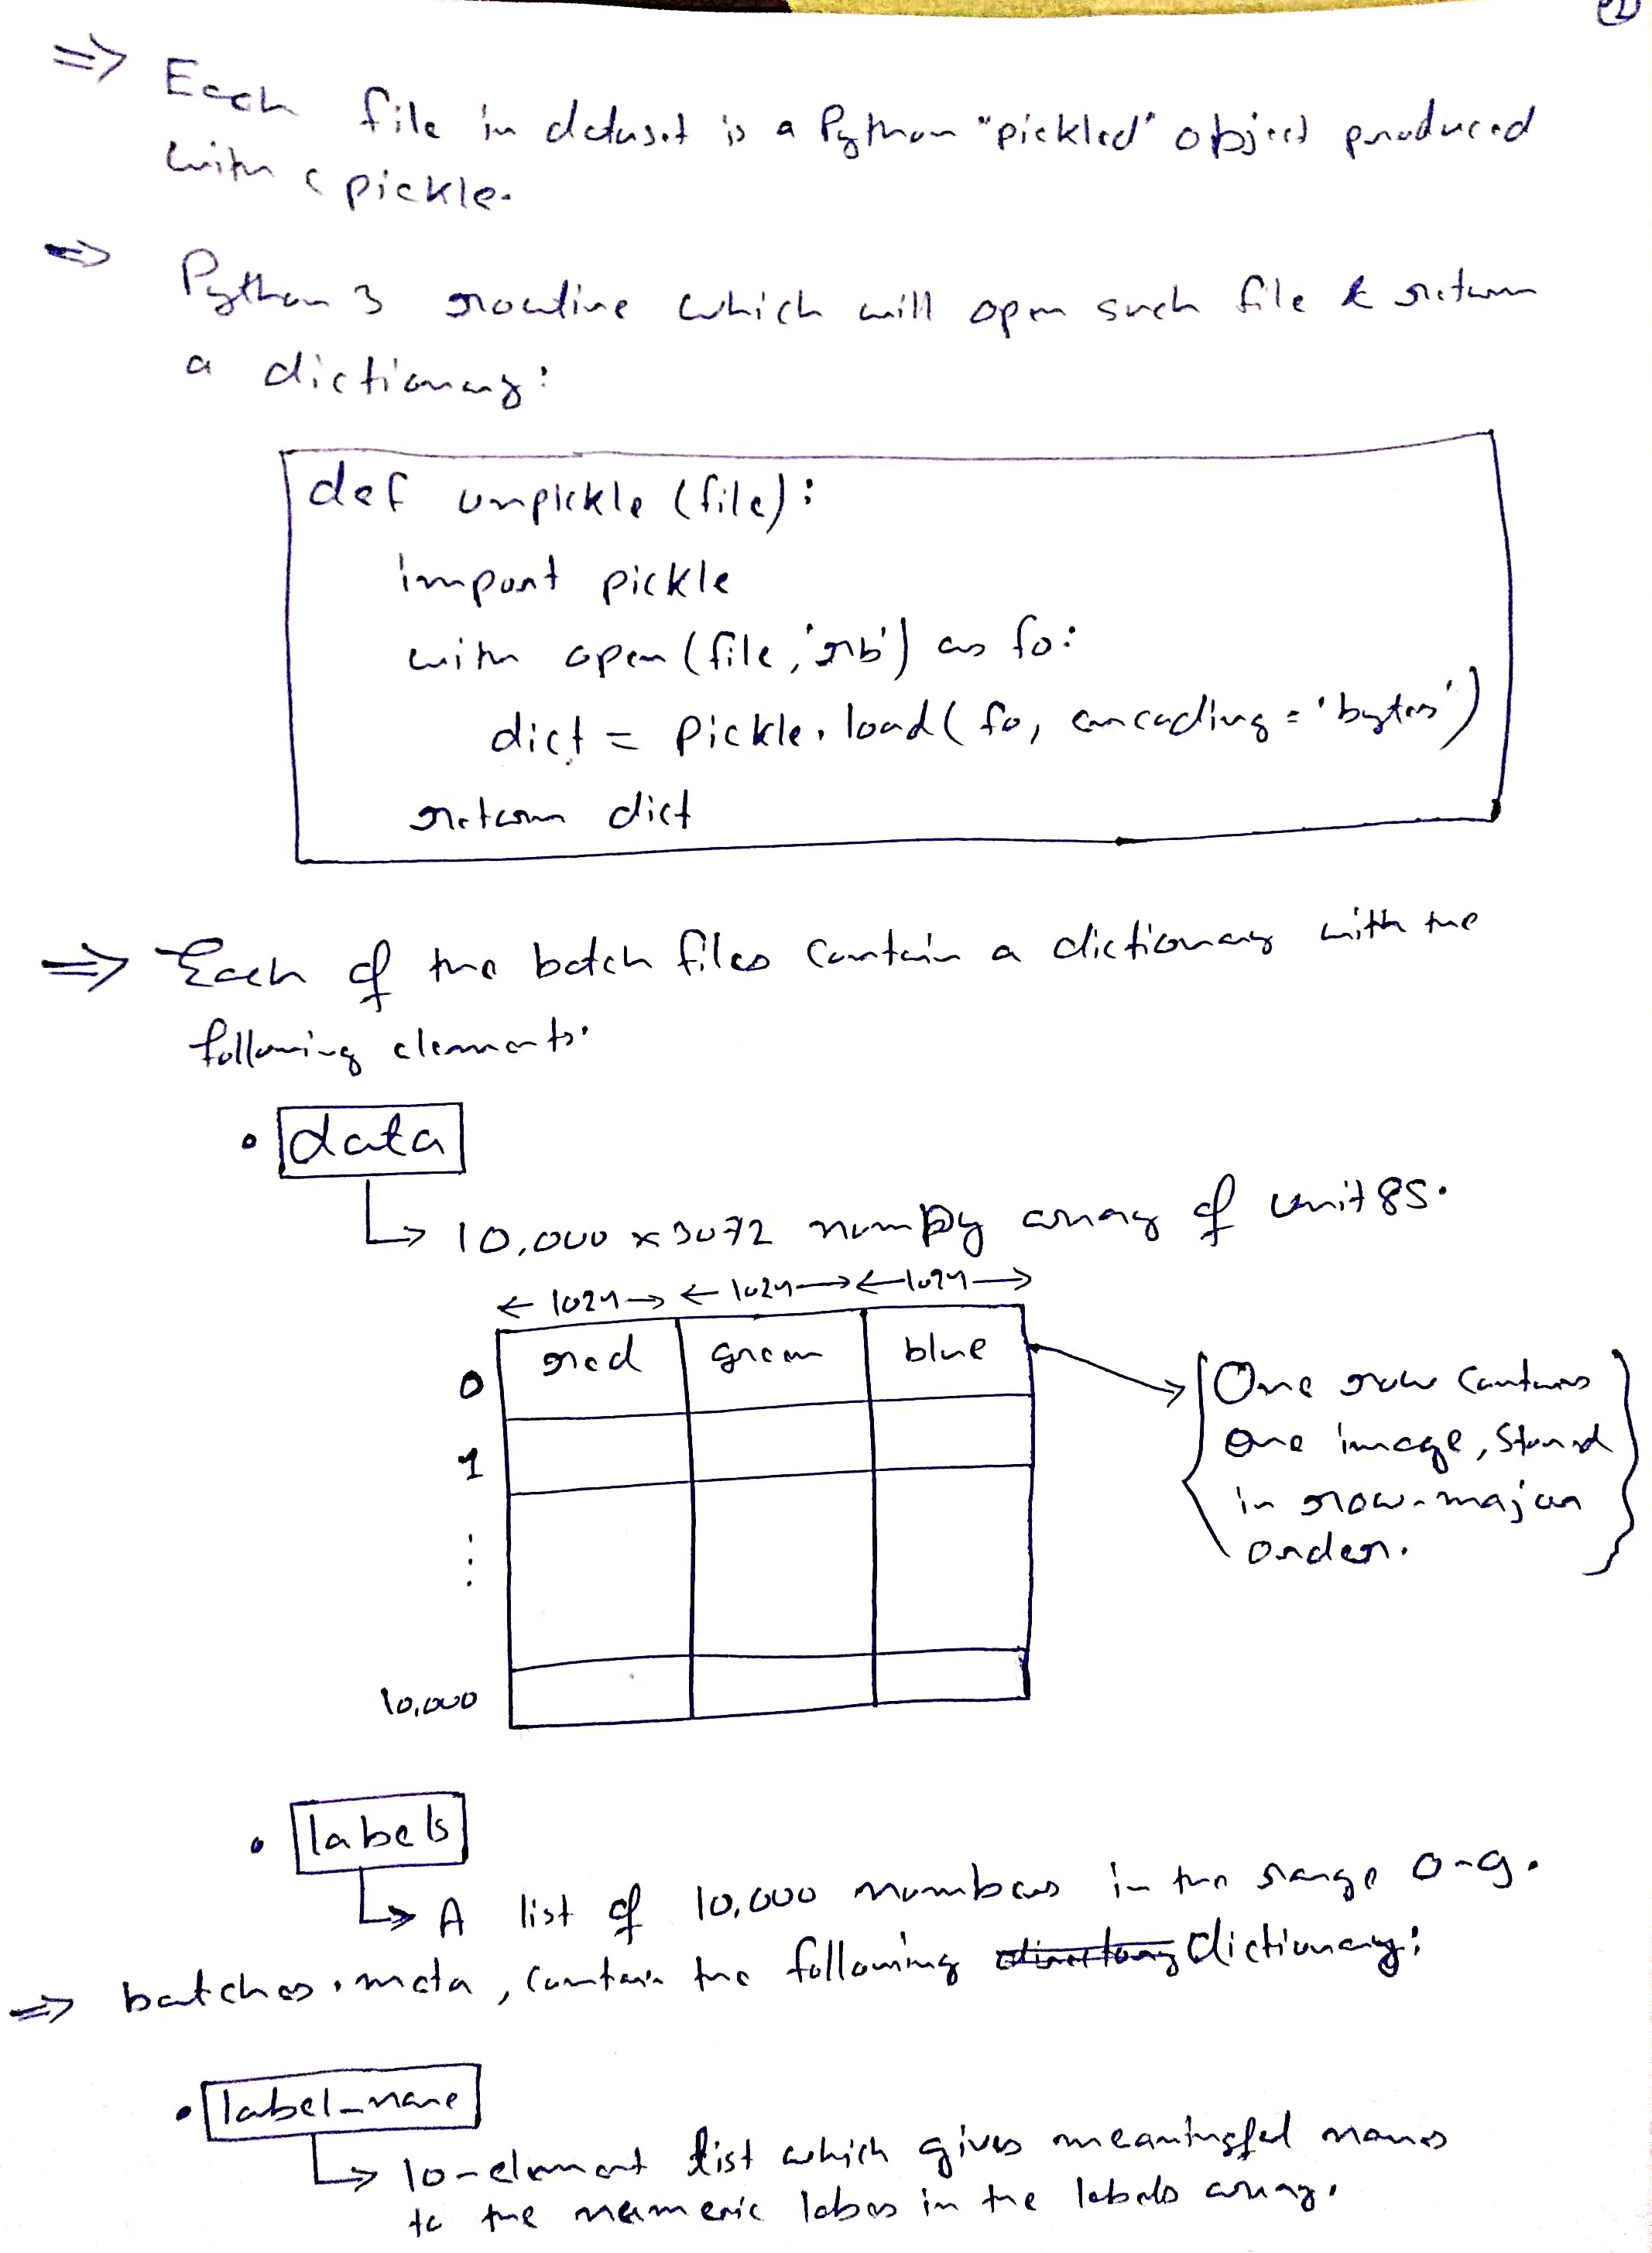 2
=> Each file in dataset is a Python "pickled" object produced
with cpickle.
=> Python 3 routine which will open such file & return
a dictionary:
def unpickle (file):
import pickle
with open (file, 'rb') as fo:
dict = pickle.load( fo, encoding = 'bytes')
return dict
=> Each of the batch files contain a dictionary with the
following elements.
• data
↳ 10,000 x 3072 numpy array of unit8s.
← 1024 → ← 1024 → ← 1024 →
0 red green blue
One row contains
one image, stored
in row-major
order.
1
⋮
10,000
• labels
↳ A list of 10,000 numbers in the range 0-9.
=> batches.meta, contain the following directory dictionary:
• label_name
↳ 10-element list which gives meaningful names
to the numeric labes in the labels array.